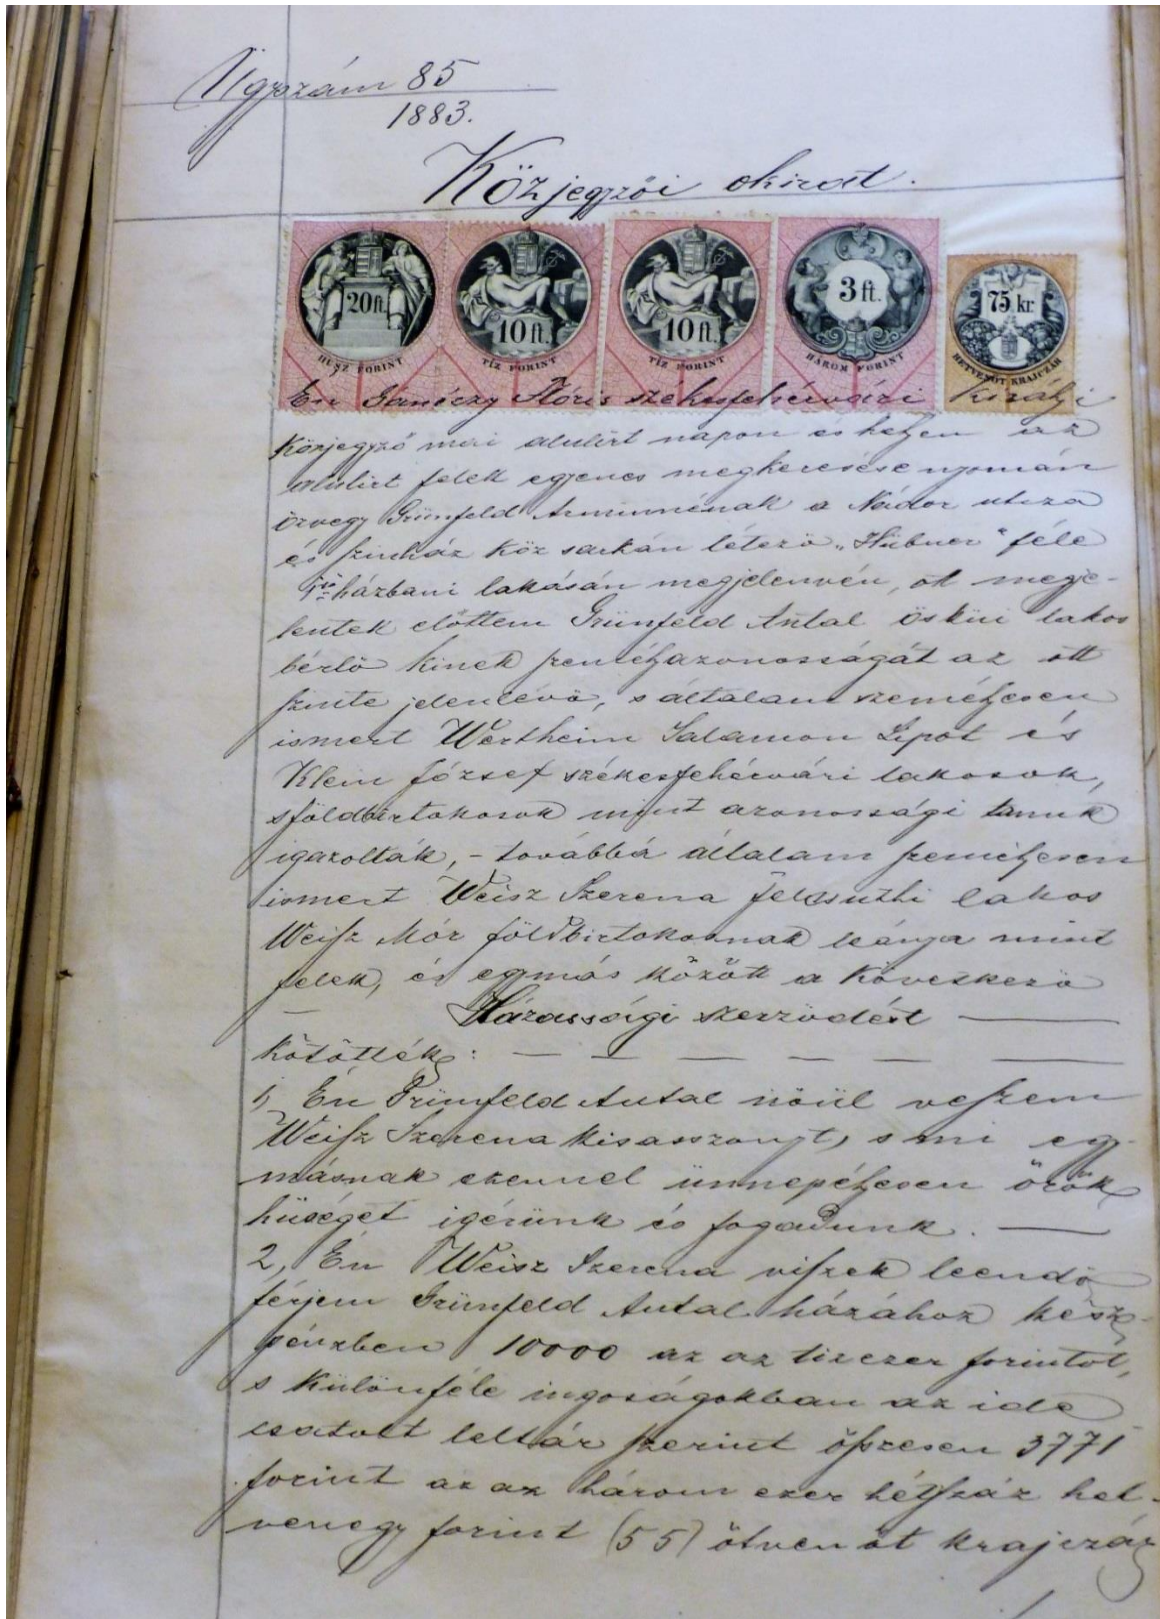 Ügyszám 85
1883.
Közjegyzői okirat.
20 ft. 10 ft. 10 ft. 3 ft. 75 kr.
HUSZ FORINT TIZ FORINT TIZ FORINT HÁROM FORINT HETVENÖT KRAJCZÁR
Én Móris székesfehérvári királyi
közjegyző mai alulirt napon és helyen az
alulirt felek egyenes megkeresése nyomán
özvegy Grünfeld Árminnénak a Nádor utcza
és szinház köz sarkán létező „Hübner" féle
házbani lakásán megjelenvén, ott megje-
lentek előttem Grünfeld Antal ösküi lakos
bérlő kinek személyazonosságát az ott
szinte jelenlévő, s általam személyesen
ismert Wertheim Salamon Lipot és
Klein József székesfehérvári lakosok,
s földbirtokosok mint azonossági tanuk
igazolták, - továbbá általam személyesen
ismert Weisz Szerena felcsuthi lakos
Weisz Mór földbirtokosnak leánya mint
felek, és egymás között a következő
Házassági szerződést
kötötték:
1, Én Grünfeld Antal nőül veszem
Weisz Szerena kisasszonyt, s mi egy-
másnak ezennel ünnepélyesen örök
hüséget igérünk és fogadunk.
2, Én Weisz Szerena viszek leendő
férjem Grünfeld Antal házához kész-
pénzben 10000 az az tizezer forintot,
s különféle ingoságokban az ide
csatolt leltár szerint öszesen 3771
forint az az három ezer hétszáz het-
venegy forint (55) ötven öt krajczár